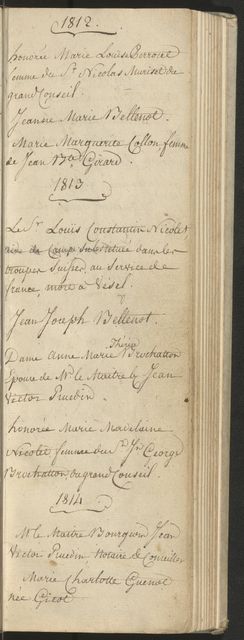 1812.
honorée Marie Louise Perrotet
femme du Sr. Nicolas Muriset du
grand Conseil.
Jeanne Marie Bellenot.
Marie Marguerite Collon femme
de Jean Bte Girard.
1813
Le Sr. Louis Constantin Nicolet
aide de Camp Substitué dans les
trouppes Suisses au Service de
france, mort à Vesel.
Jean Joseph Bellenot.
Dame Anne Marie Therese
Epouse de Mr. le Maitre by Jean
Victor Ruedin.
honorée Marie Madelaine
Nicolet femme du Sr. Jn. George
du grand Conseil.
1814
Mr. le Maitre Bourgeois Jean
Victor Ruedin Notaire & Conseiller
Marie Charlotte Guenot
née Gicot